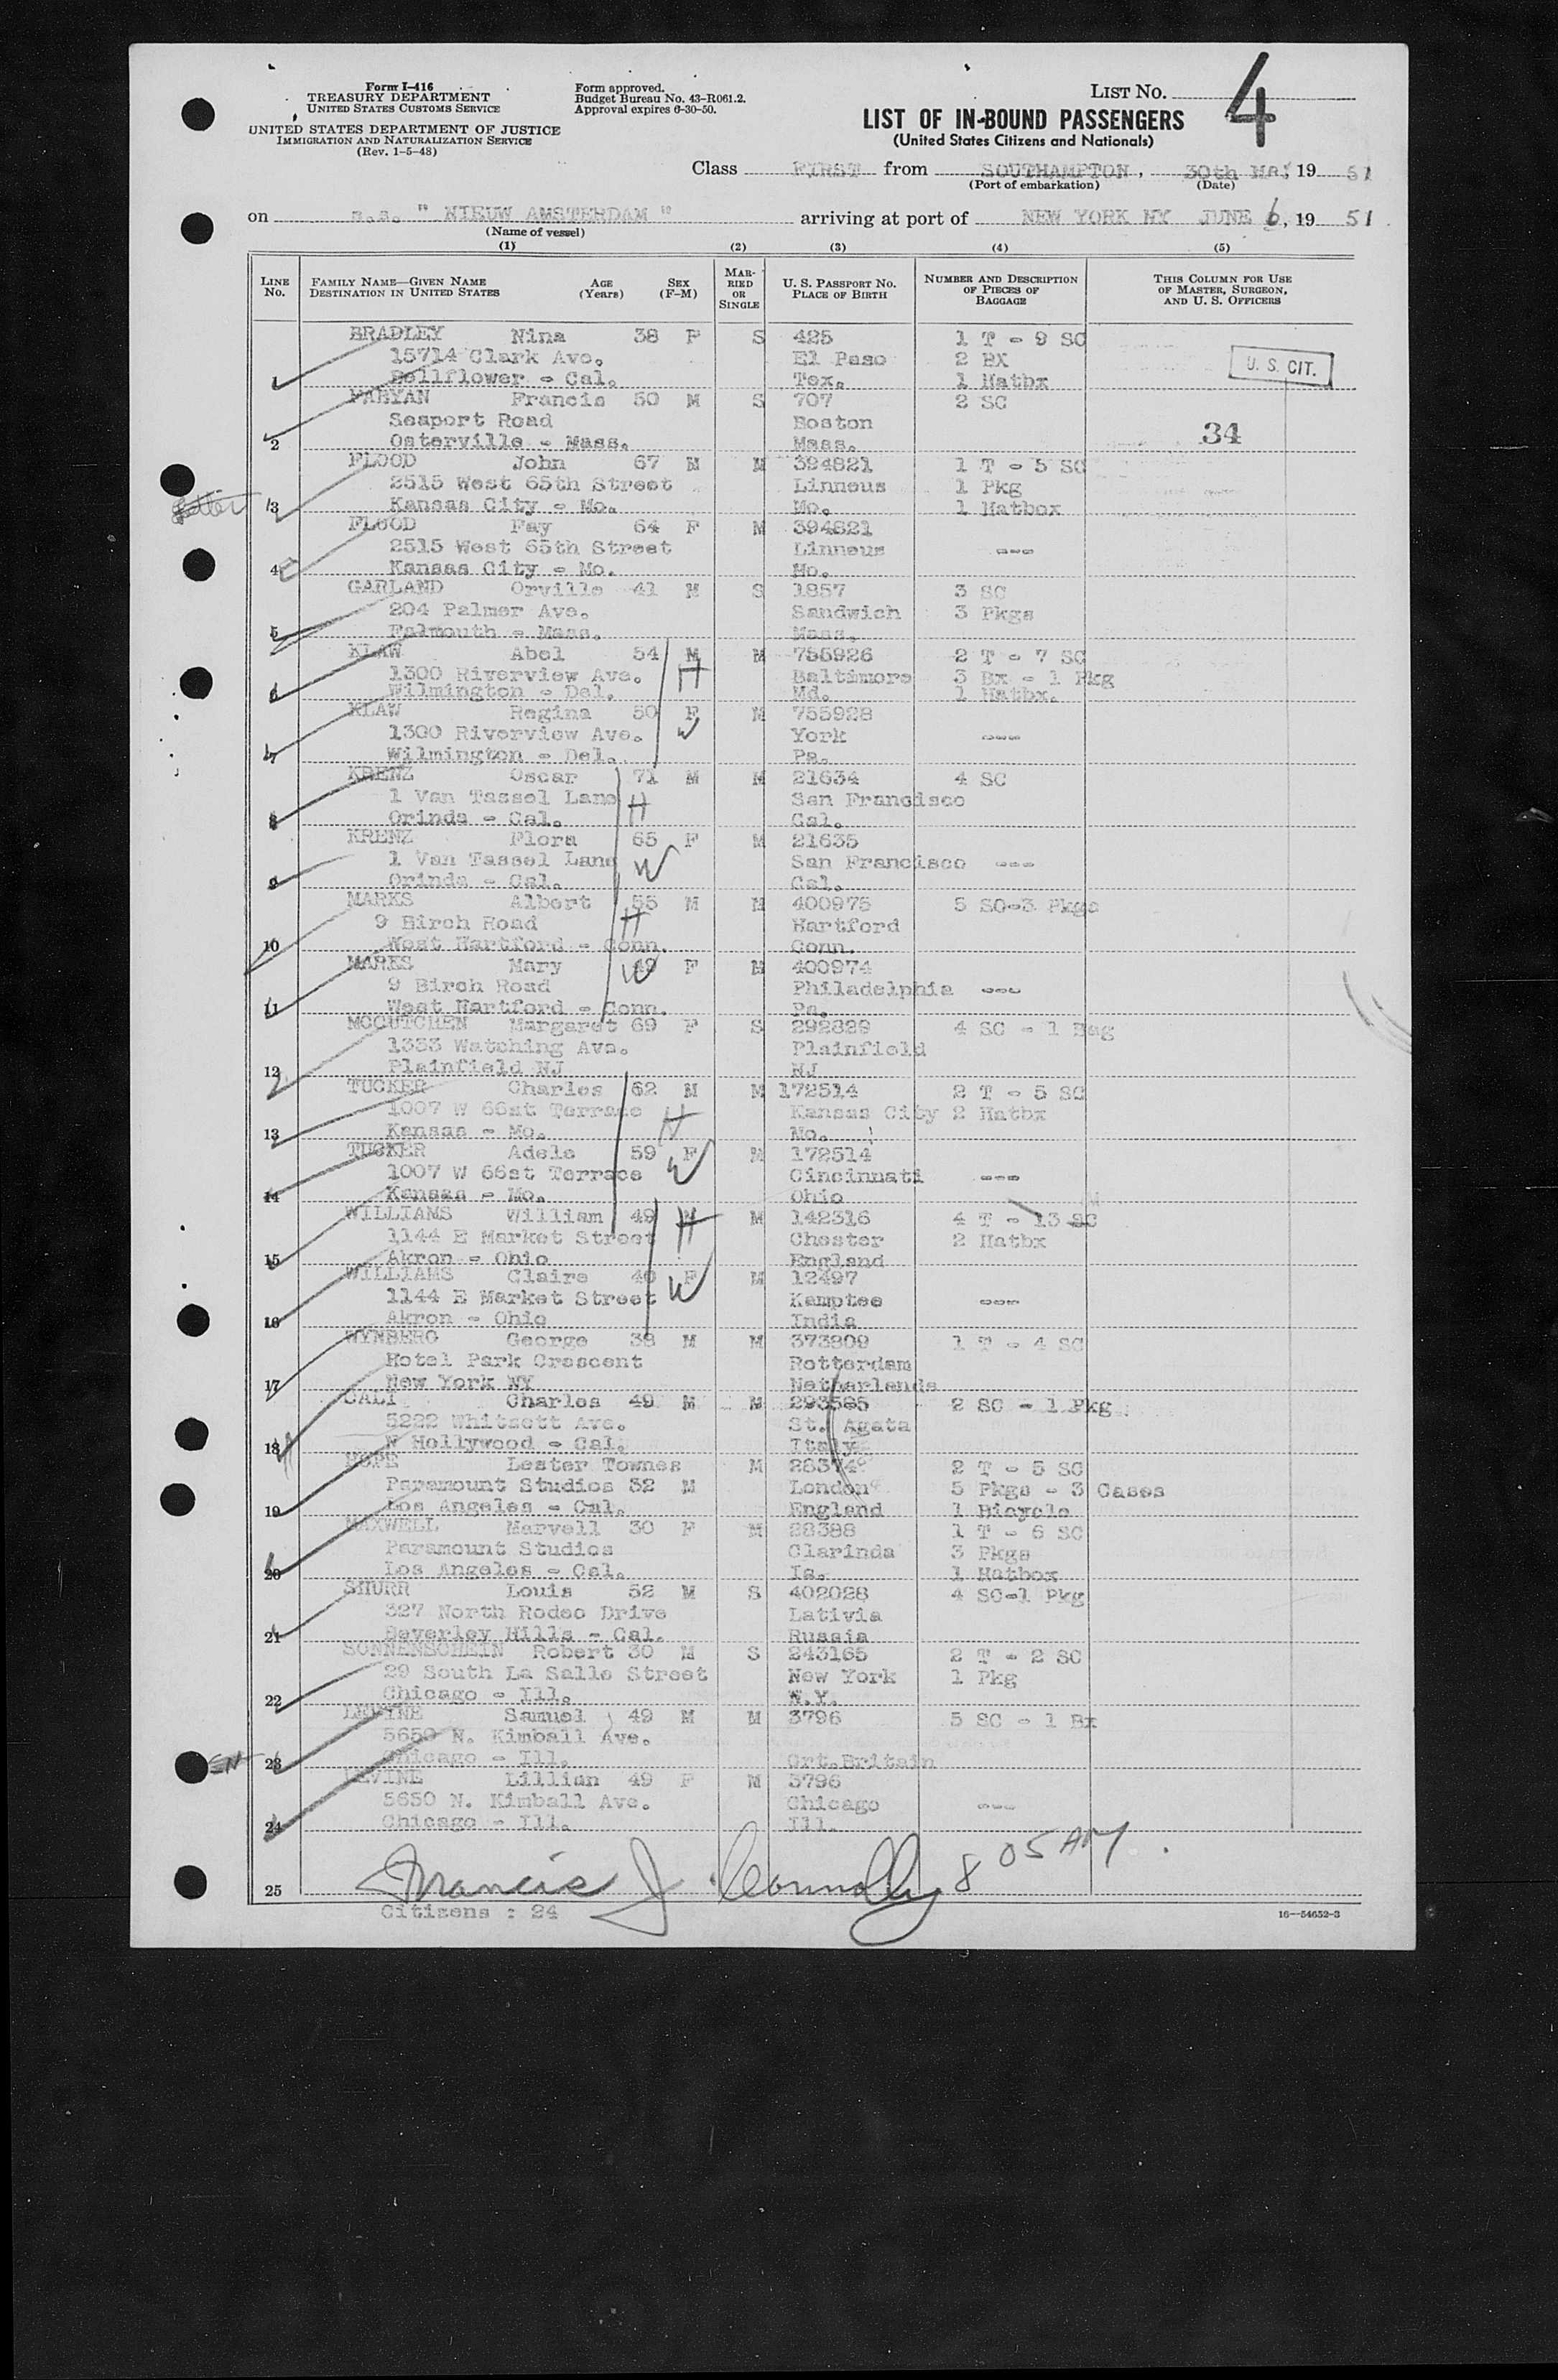 Form I-416
TREASURY DEPARTMENT
UNITED STATES CUSTOMS SERVICE
UNITED STATES DEPARTMENT OF JUSTICE
IMMIGRATION AND NATURALIZATION SERVICE
(Rev. 1-5-48)
Form approved.
Budget Bureau No. 43-R061.2.
Approval expires 6-30-50.
LIST No. 4
LIST OF IN-BOUND PASSENGERS
(United States Citizens and Nationals)
Class FIRST from SOUTHAMPTON, 30th May 1951
(Port of embarkation) (Date)
on s.s. " NIEUW AMSTERDAM " arriving at port of NEW YORK NY JUNE 6, 1951
(Name of vessel)
(1) (2) (3) (4) (5)
LINE No. FAMILY NAME—GIVEN NAME DESTINATION IN UNITED STATES AGE (Years) SEX (F-M) MARRIED OR SINGLE U. S. PASSPORT NO. PLACE OF BIRTH NUMBER AND DESCRIPTION OF PIECES OF BAGGAGE THIS COLUMN FOR USE OF MASTER, SURGEON, AND U. S. OFFICERS
BRADLEY Nina 38 F S 425 1 T - 9 SC
15714 Clark Ave. El Paso 2 BX U. S. CIT.
1 Bellflower - Cal. Tex. 1 Hatbx
FABYAN Francis 50 M S 707 2 SC
Seaport Road Boston
2 Osterville - Mass. Mass. 34
FLOOD John 67 M M 394821 1 T - 5 SC
2515 West 65th Street Linneus 1 Pkg
3 Kansas City - Mo. Mo. 1 Hatbox
FLOOD Fay 64 F M 394821
2515 West 65th Street Linneus ---
4 Kansas City - Mo. Mo.
GARLAND Orville 41 M S 1857 3 SC
204 Palmer Ave. Sandwich 3 Pkgs
5 Falmouth - Mass. Mass.
KLAW Abel 54 M M 755926 2 T - 7 SC
1300 Riverview Ave. H Baltimore 3 Bx - 1 Pkg
6 Wilmington - Del. Md. 1 Hatbx.
KLAW Regina 50 F M 755928
1300 Riverview Ave. W York ---
7 Wilmington - Del. Pa.
KRENZ Oscar 71 M M 21634 4 SC
1 Van Tassel Lane H San Francisco
8 Orinda - Cal. Cal.
KRENZ Flora 65 F M 21635
1 Van Tassel Lane W San Francisco ---
9 Orinda - Cal. Cal.
MARKS Albert 55 M M 400975 5 SC-3 Pkgs
9 Birch Road H Hartford
10 West Hartford - Conn. Conn.
MARKS Mary 49 W F M 400974
9 Birch Road Philadelphia ---
11 West Hartford - Conn. Pa.
MCCUTCHEN Margaret 69 F S 292829 4 SC - 1 Bag
1353 Watching Ave. Plainfield
12 Plainfield NJ NJ
TUCKER Charles 62 M M 172514 2 T - 5 SC
1007 W 66st Terrace H Kansas City 2 Hatbx
13 Kansas - Mo. Mo.
TUCKER Adele 59 F M 172514
1007 W 66st Terrace W Cincinnati ---
14 Kansas - Mo. Ohio
WILLIAMS William 49 H M 142316 4 T - 13 SC
1144 E Market Street Chester 2 Hatbx
15 Akron - Ohio England
WILLIAMS Claire 40 F M 12497
1144 E Market Street W Kamptee ---
16 Akron - Ohio India
WYNBERG George 38 M M 373809 1 T - 4 SC
Hotel Park Crescent Rotterdam
17 New York NY Netherlands
CALI Charles 49 M M 293585 2 SC - 1 Pkg
5222 Whitsett Ave. St. Agata
18 N Hollywood - Cal. Italy
HOPE Lester Townes M 28374 2 T - 5 SC
Paramount Studios 52 M London 5 Pkgs - 3 Cases
19 Los Angeles - Cal. England 1 Bicycle
MAXWELL Marvell 30 F M 28388 1 T - 6 SC
Paramount Studios Clarinda 3 Pkgs
20 Los Angeles - Cal. Ia. 1 Hatbox
SHURR Louis 52 M S 402028 4 SC-1 Pkg
327 North Rodeo Drive Lativia
21 Beverley Hills - Cal. Russia
SONNENSCHEIN Robert 30 M S 243165 2 T - 2 SC
29 South La Salle Street New York 1 Pkg
22 Chicago - Ill. N.Y.
LEVINE Samuel 49 M M 3796 5 SC - 1 Bx
5650 N. Kimball Ave.
23 Chicago - Ill. Grt.Britain
LEVINE Lillian 49 F M 3796
5650 N. Kimball Ave. Chicago ---
24 Chicago - Ill. Ill.
25 Francis J Connolly 8 05 AM
Citizens : 24
16—54652-3